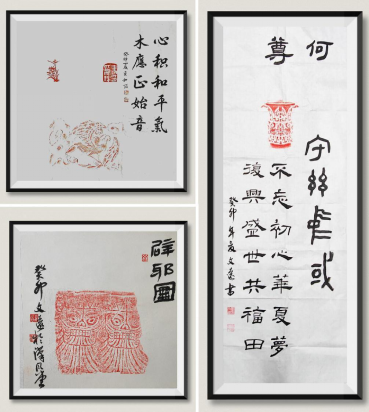 心积和平氣
木應正始音
辟邪圖
癸卯文
何尊
宅兹中或
不忘初心華夏夢
復興盛世共福田
癸卯年夏文